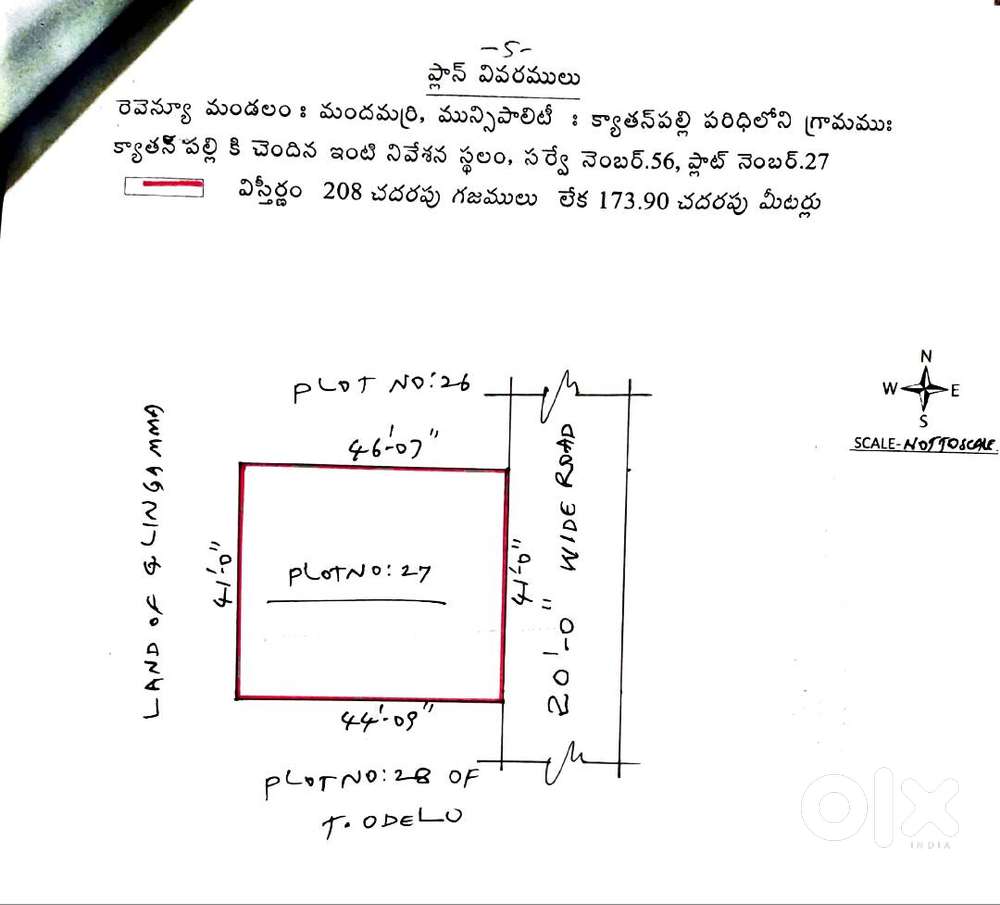 -5-
ప్లాన్ వివరములు
రెవెన్యూ మండలం : మందమర్రి, మున్సిపాలిటీ : క్యాతన్‌పల్లి పరిధిలోని గ్రామము:
క్యాతన్ పల్లి కి చెందిన ఇంటి నివేశన స్థలం, సర్వే నెంబర్.56, ప్లాట్ నెంబర్.27
విస్తీర్ణం 208 చదరపు గజములు లేక 173.90 చదరపు మీటర్లు
N
W E
S
SCALE-NOT TO SCALE
PLOT NO:26
46'-07"
LAND OF G LINGAMMA
41'-0"
PLOT NO:27
41'-0"
20'-0" WIDE ROAD
44'-09"
PLOT NO:28 OF
T. ODELU
olx
INDIA